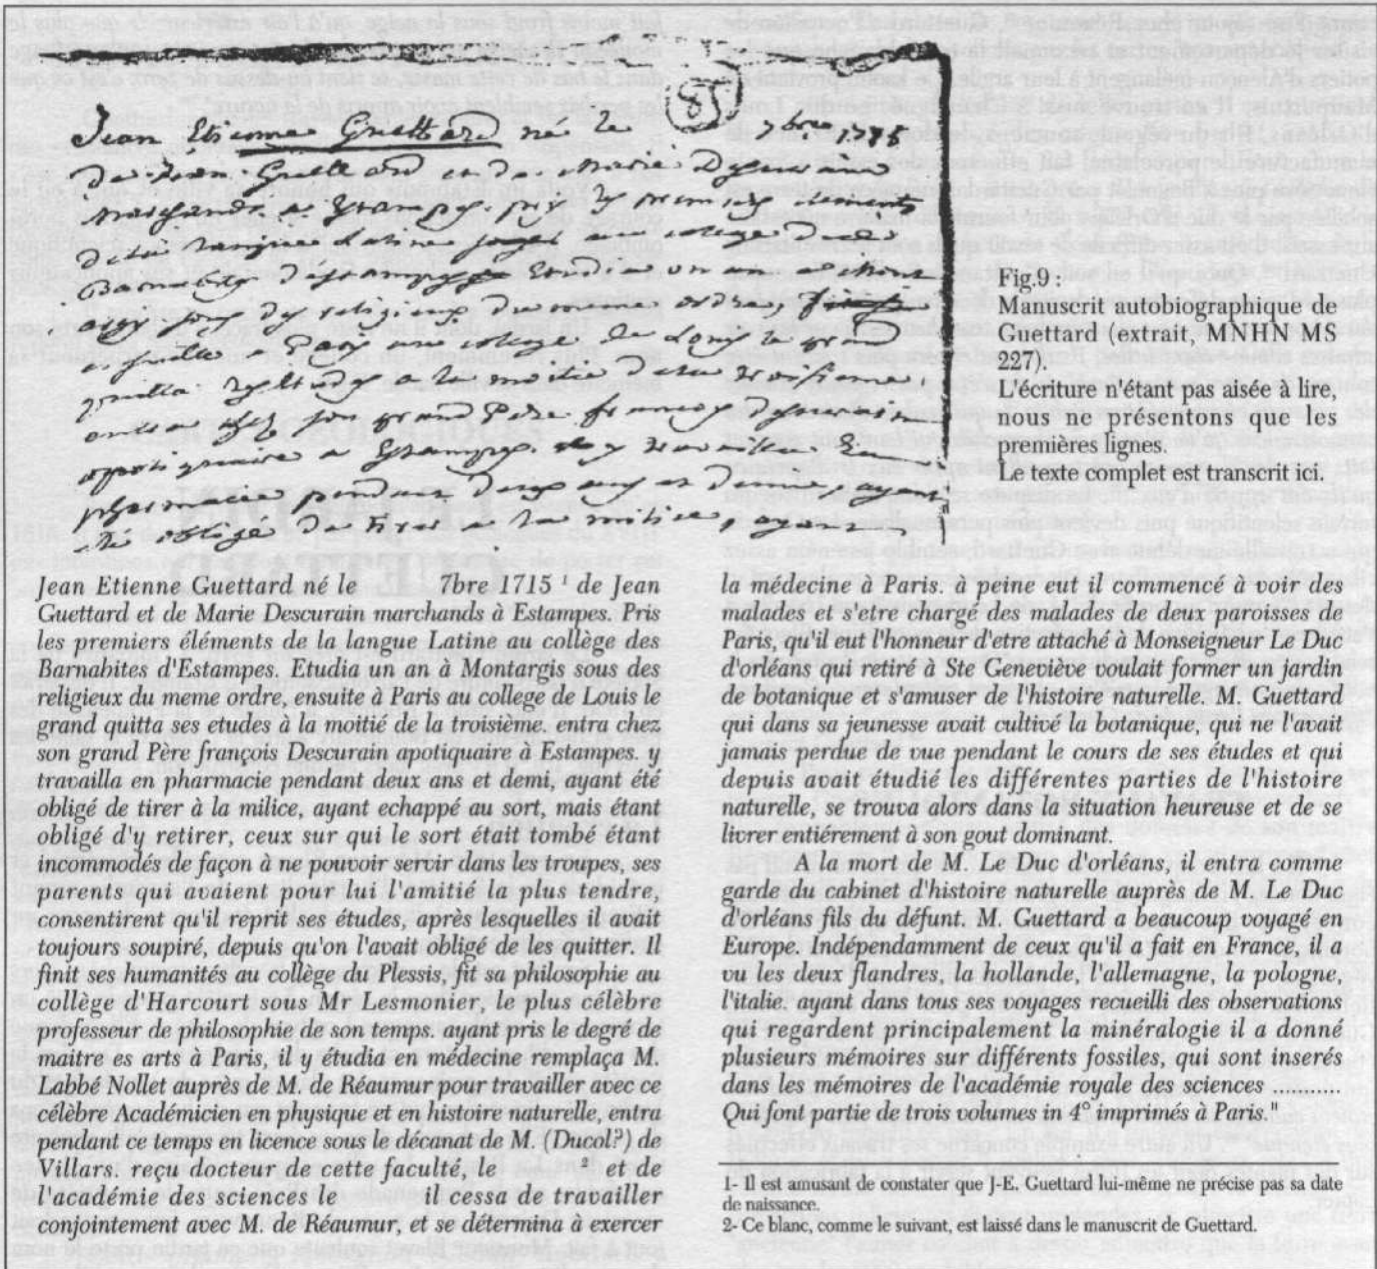 Jean Etienne Guettard né le 7bre 1715
de Jean Guettard et de Marie Descurain
marchands a Estampes pris les premiers elements
de la langue Latine au college des
Barnabites d'Estampes Etudia un an a
sous des religieux du meme ordre,
a Paris au college de Louis le grand
quitta ses etudes a la moitié de la troisieme
entra chez son grand Pere françois Descurain
apotiquaire a Estampes. y travailla En
pharmacie pendant deux ans et demi, ayant
été obligé de tirer a la milice, ayant
Fig.9 :
Manuscrit autobiographique de
Guettard (extrait, MNHN MS
227).
L'écriture n'étant pas aisée à lire,
nous ne présentons que les
premières lignes.
Le texte complet est transcrit ici.
Jean Etienne Guettard né le 7bre 1715 1 de Jean
Guettard et de Marie Descurain marchands à Estampes. Pris
les premiers éléments de la langue Latine au collège des
Barnabites d'Estampes. Etudia un an à Montargis sous des
religieux du meme ordre, ensuite à Paris au college de Louis le
grand quitta ses etudes à la moitié de la troisième. entra chez
son grand Père françois Descurain apotiquaire à Estampes. y
travailla en pharmacie pendant deux ans et demi, ayant été
obligé de tirer à la milice, ayant echappé au sort, mais étant
obligé d'y retirer, ceux sur qui le sort était tombé étant
incommodés de façon à ne pouvoir servir dans les troupes, ses
parents qui avaient pour lui l'amitié la plus tendre,
consentirent qu'il reprit ses études, après lesquelles il avait
toujours soupiré, depuis qu'on l'avait obligé de les quitter. Il
finit ses humanités au collège du Plessis, fit sa philosophie au
collège d'Harcourt sous Mr Lesmonier, le plus célèbre
professeur de philosophie de son temps. ayant pris le degré de
maitre es arts à Paris, il y étudia en médecine remplaça M.
Labbé Nollet auprès de M. de Réaumur pour travailler avec ce
célèbre Académicien en physique et en histoire naturelle, entra
pendant ce temps en licence sous le décanat de M. (Ducol?) de
Villars. reçu docteur de cette faculté, le 2 et de
l'académie des sciences le il cessa de travailler
conjointement avec M. de Réaumur, et se détermina à exercer
la médecine à Paris. à peine eut il commencé à voir des
malades et s'etre chargé des malades de deux paroisses de
Paris, qu'il eut l'honneur d'etre attaché à Monseigneur Le Duc
d'orléans qui retiré à Ste Geneviève voulait former un jardin
de botanique et s'amuser de l'histoire naturelle. M. Guettard
qui dans sa jeunesse avait cultivé la botanique, qui ne l'avait
jamais perdue de vue pendant le cours de ses études et qui
depuis avait étudié les différentes parties de l'histoire
naturelle, se trouva alors dans la situation heureuse et de se
livrer entiérement à son gout dominant.
A la mort de M. Le Duc d'orléans, il entra comme
garde du cabinet d'histoire naturelle auprès de M. Le Duc
d'orléans fils du défunt. M. Guettard a beaucoup voyagé en
Europe. Indépendamment de ceux qu'il a fait en France, il a
vu les deux flandres, la hollande, l'allemagne, la pologne,
l'italie. ayant dans tous ses voyages recueilli des observations
qui regardent principalement la minéralogie il a donné
plusieurs mémoires sur différents fossiles, qui sont inserés
dans les mémoires de l'académie royale des sciences ...........
Qui font partie de trois volumes in 4° imprimés à Paris."
1- Il est amusant de constater que J-E. Guettard lui-même ne précise pas sa date
de naissance.
2- Ce blanc, comme le suivant, est laissé dans le manuscrit de Guettard.